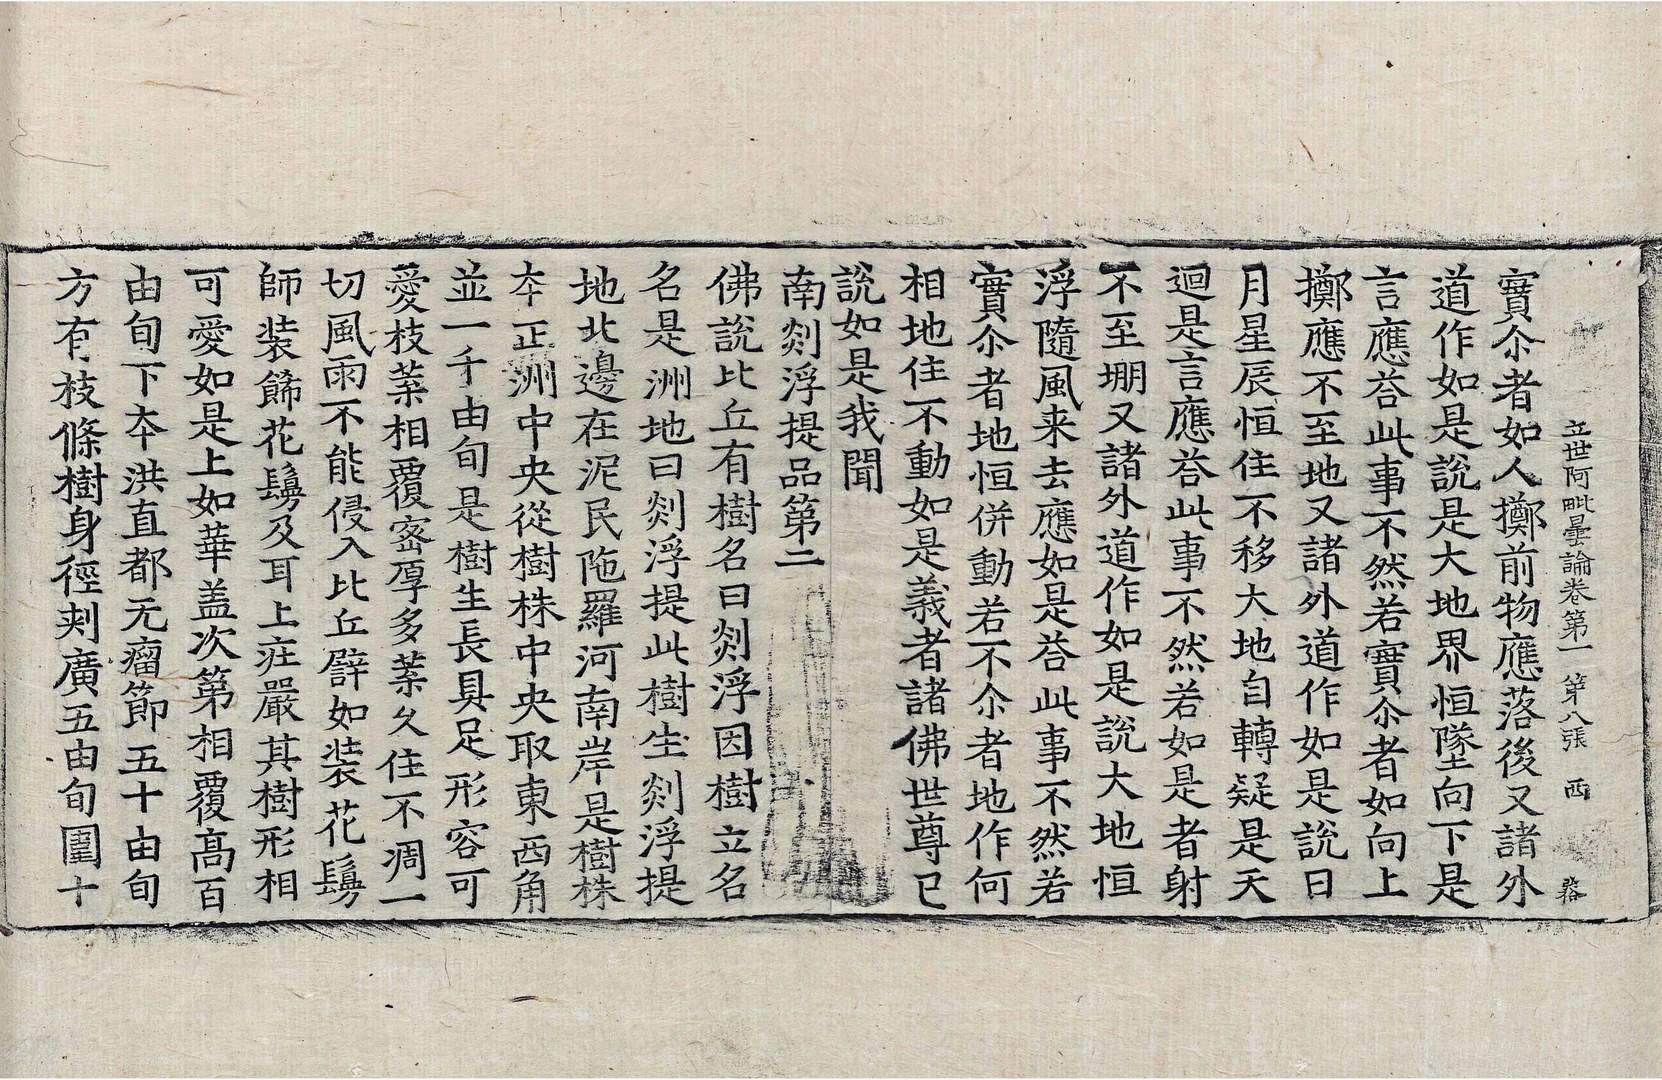 立世阿毗曇論卷第一 第八張 西
實尒者如人擲前物應落後又諸外
道作如是說是大地界恒墜向下是
言應荅此事不然若實尒者如向上
擲應不至地又諸外道作如是說日
月星辰恒住不移大地自轉疑是天
迴是言應荅此事不然若如是者射
不至堋又諸外道作如是說大地恒
浮隨風来去應如是荅此事不然若
實尒者地恒併動若不尒者地作何
相地住不動如是義者諸佛世尊已
說如是我聞
南剡浮提品第二
佛說比丘有樹名曰剡浮因樹立名
名是洲地曰剡浮提此樹生剡浮提
地北邊在泥民陁羅河南岸是樹株
夲正洲中央從樹株中央取東西角
並一千由旬是樹生長具足形容可
愛枝葉相覆密厚多葉久住不凋一
切風雨不能侵入比丘譬如装花鬘
師装餙花鬘及耳上疘嚴其樹形相
可愛如是上如華盖次第相覆高百
由旬下夲洪直都无瘤節五十由旬
方有枝條樹身徑刾廣五由旬圍十